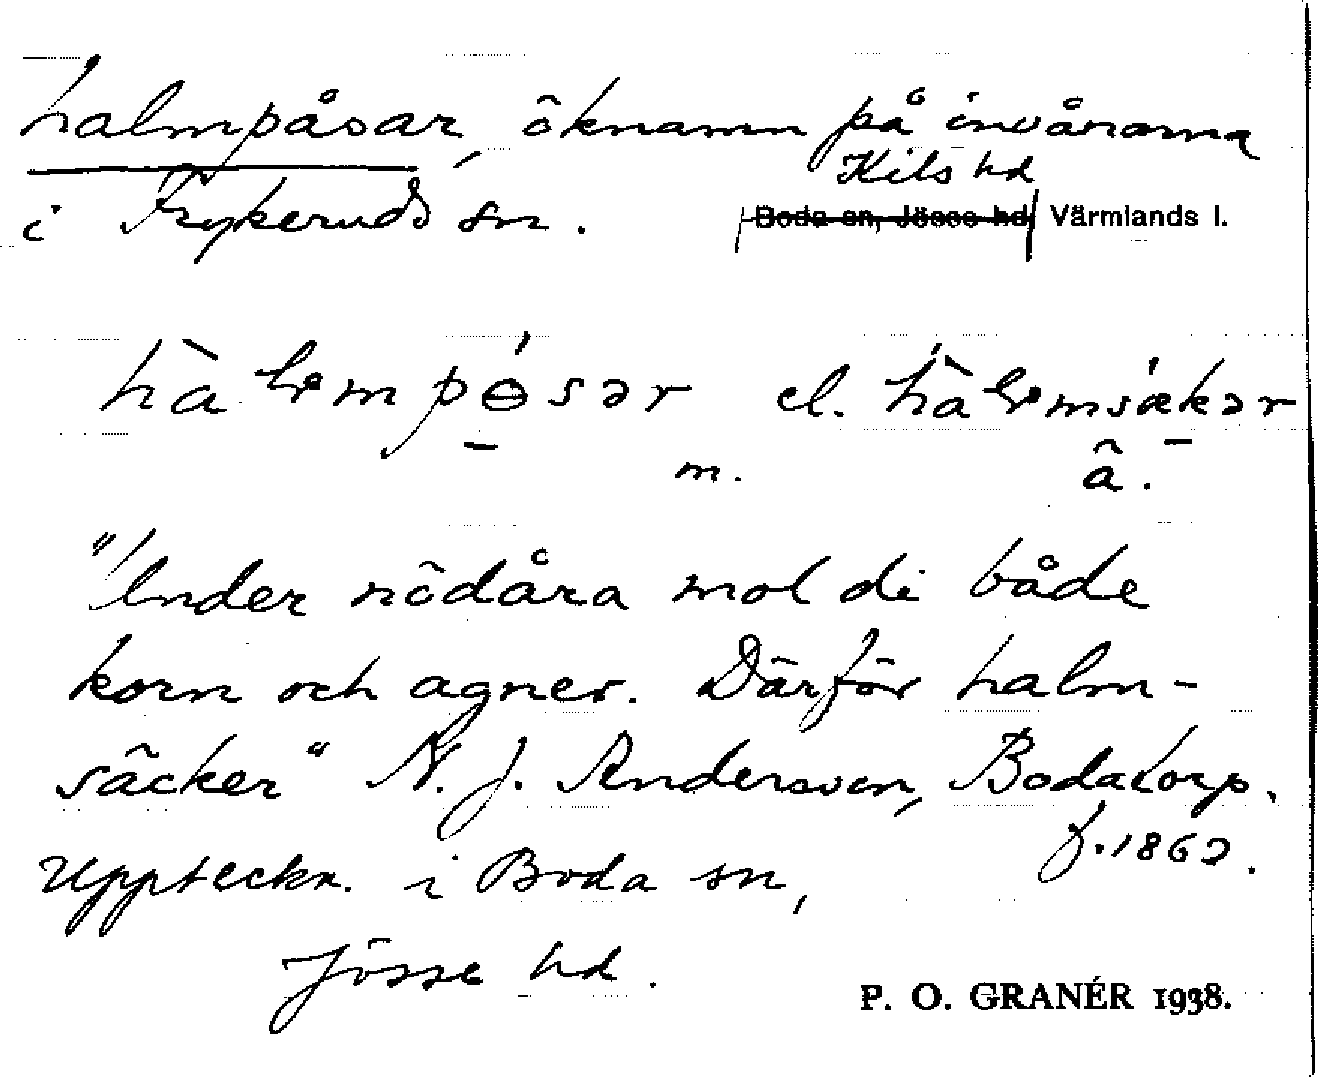 halmpåsar, öknamn på invånarna
Kils hd
i Frykeruds sn. Boda sn, Jösse hd Värmlands l.
el.
m. â.
"Under nödåra mol di både
korn och agner. Därför halm-
säcker" N. J. Anderson, Bodatorp.
f. 1862.
Uppteckn. i Boda sn,
Jösse hd.
P. O. GRANÉR 1938.